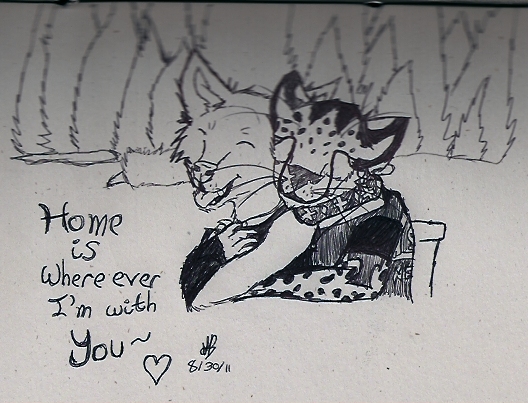 Home
is
Where ever
I'm with
You~
♡
8/30/11